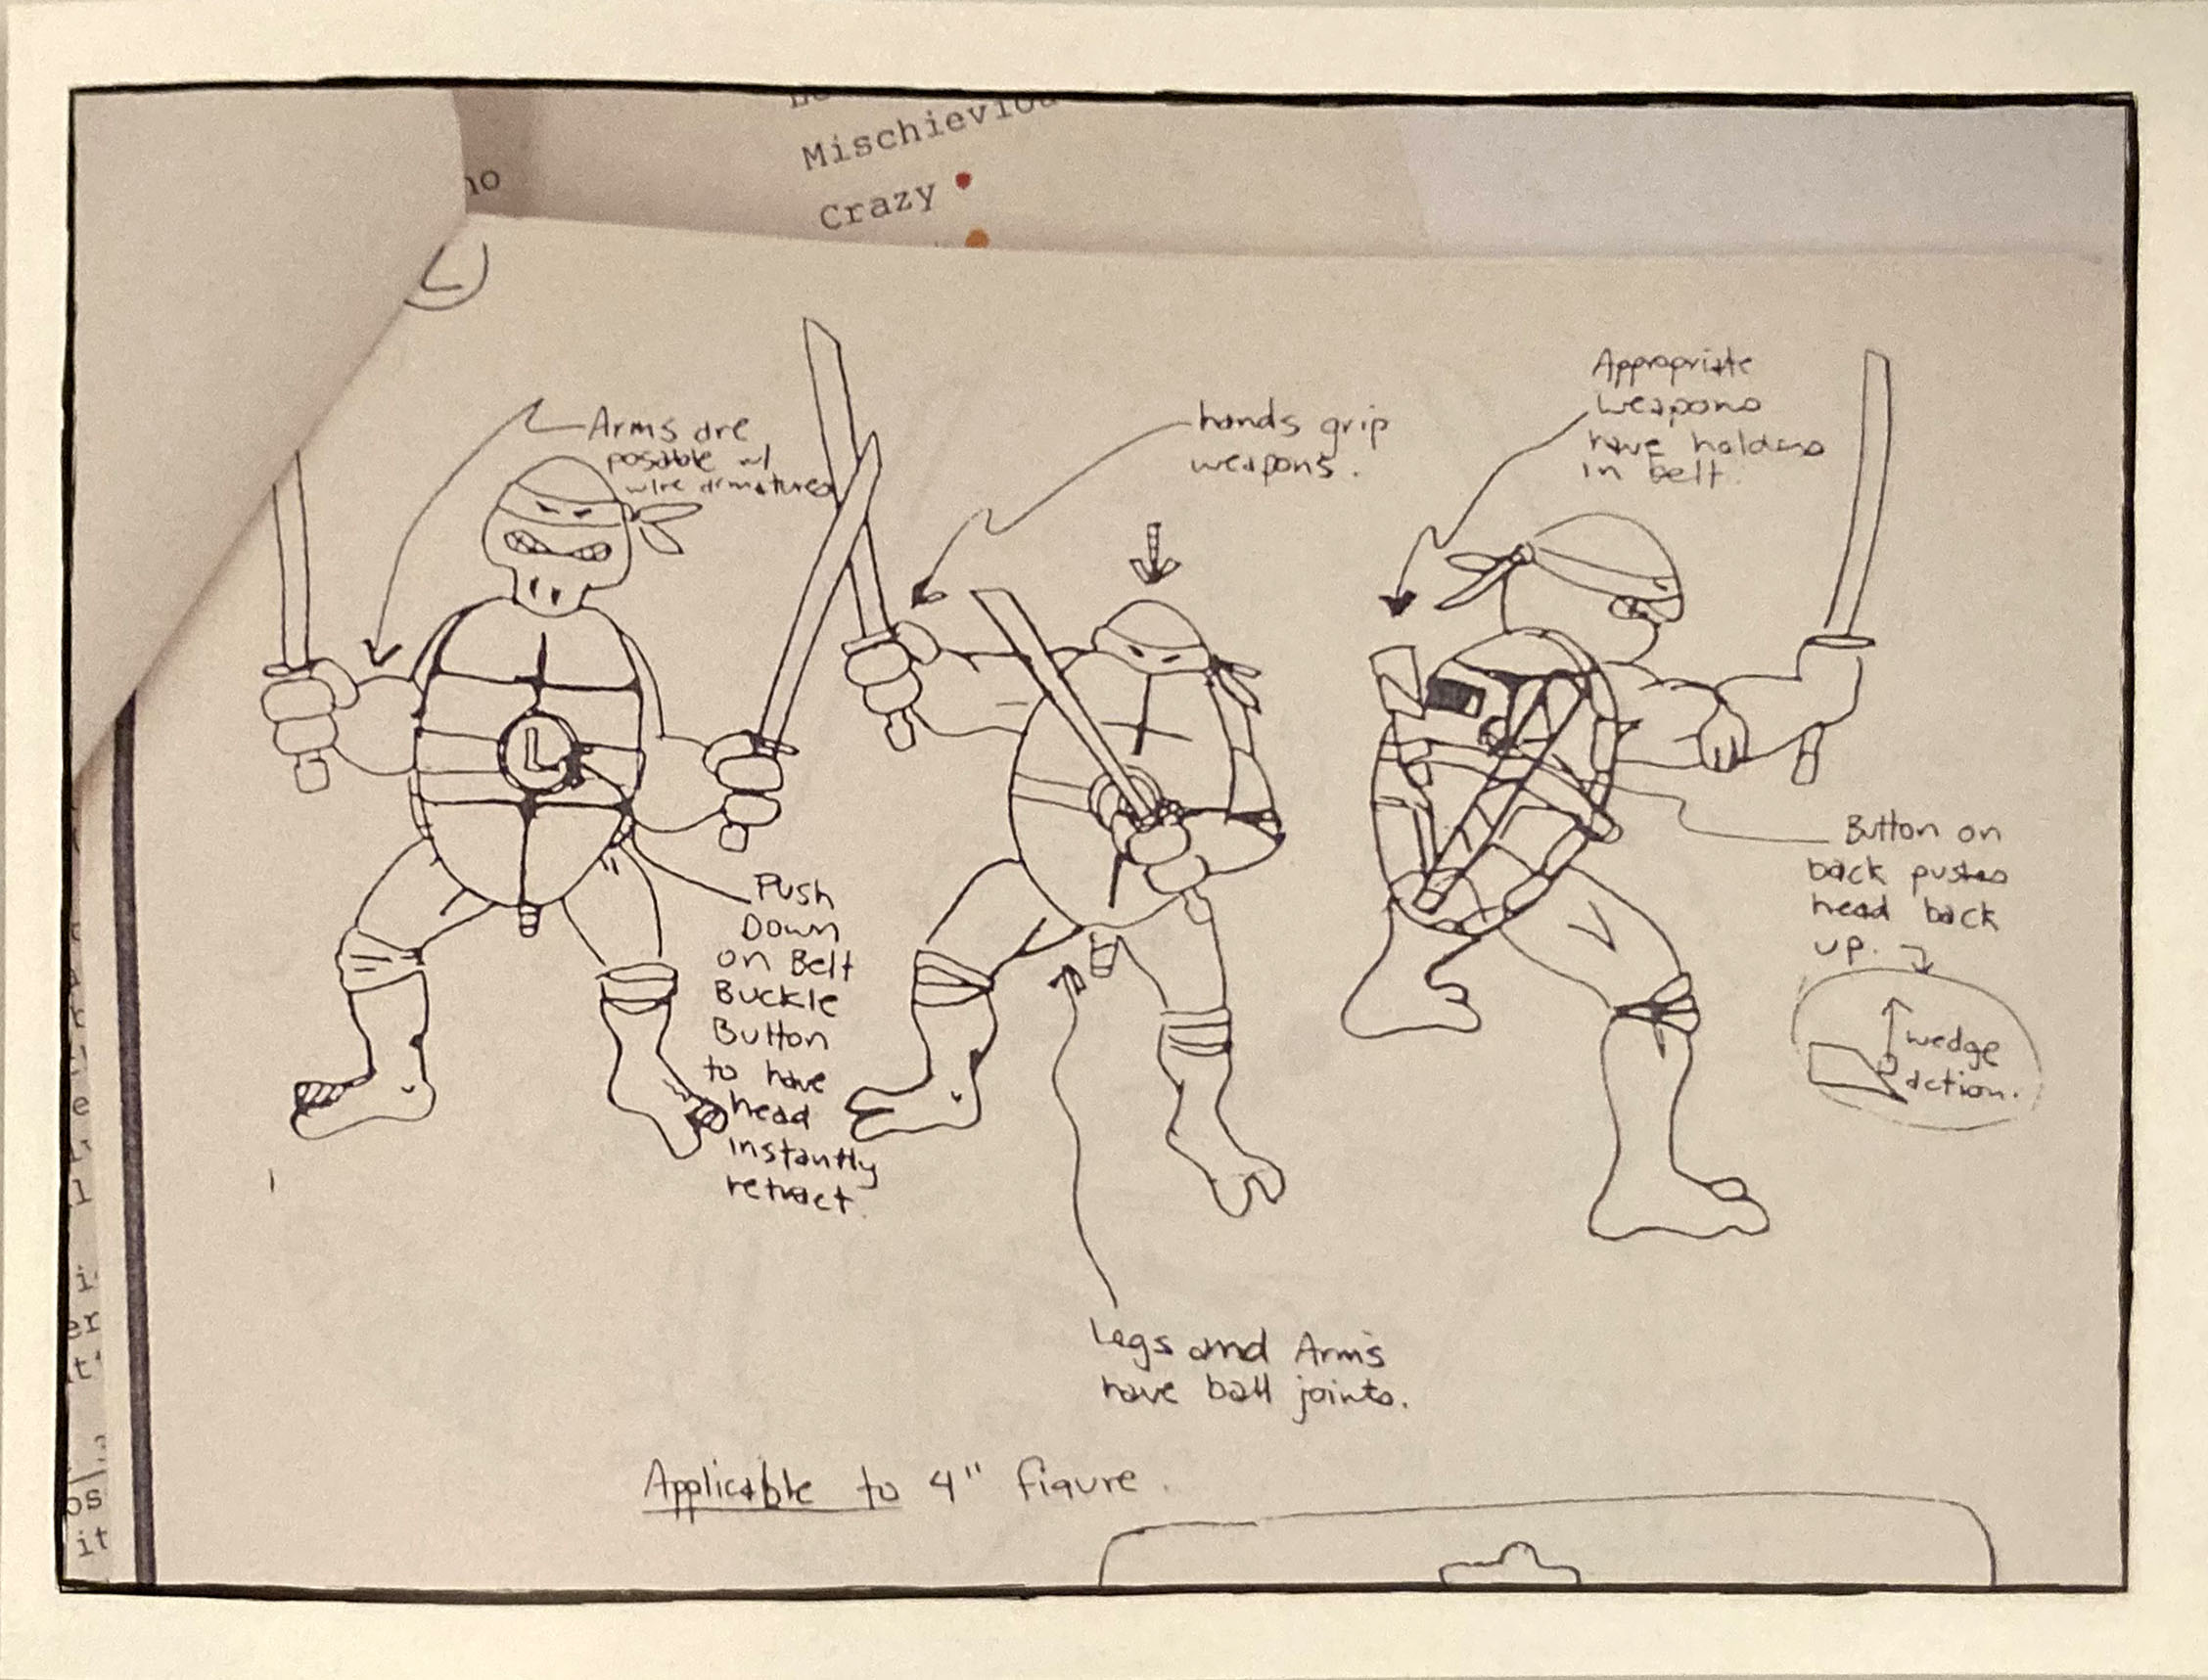 Mischieviou
Crazy
no
L
Arms are
posable w/
wire armatures
hands grip
weapons.
Appropriate
weapons
have holders
in belt.
L
Push
Down
on Belt
Buckle
Button
to have
head
instantly
retract.
Button on
back pushes
head back
up.
wedge
action.
Legs and Arms
have ball joints.
Applicable to 4" figure.
e
l
i
er
t'
os
it